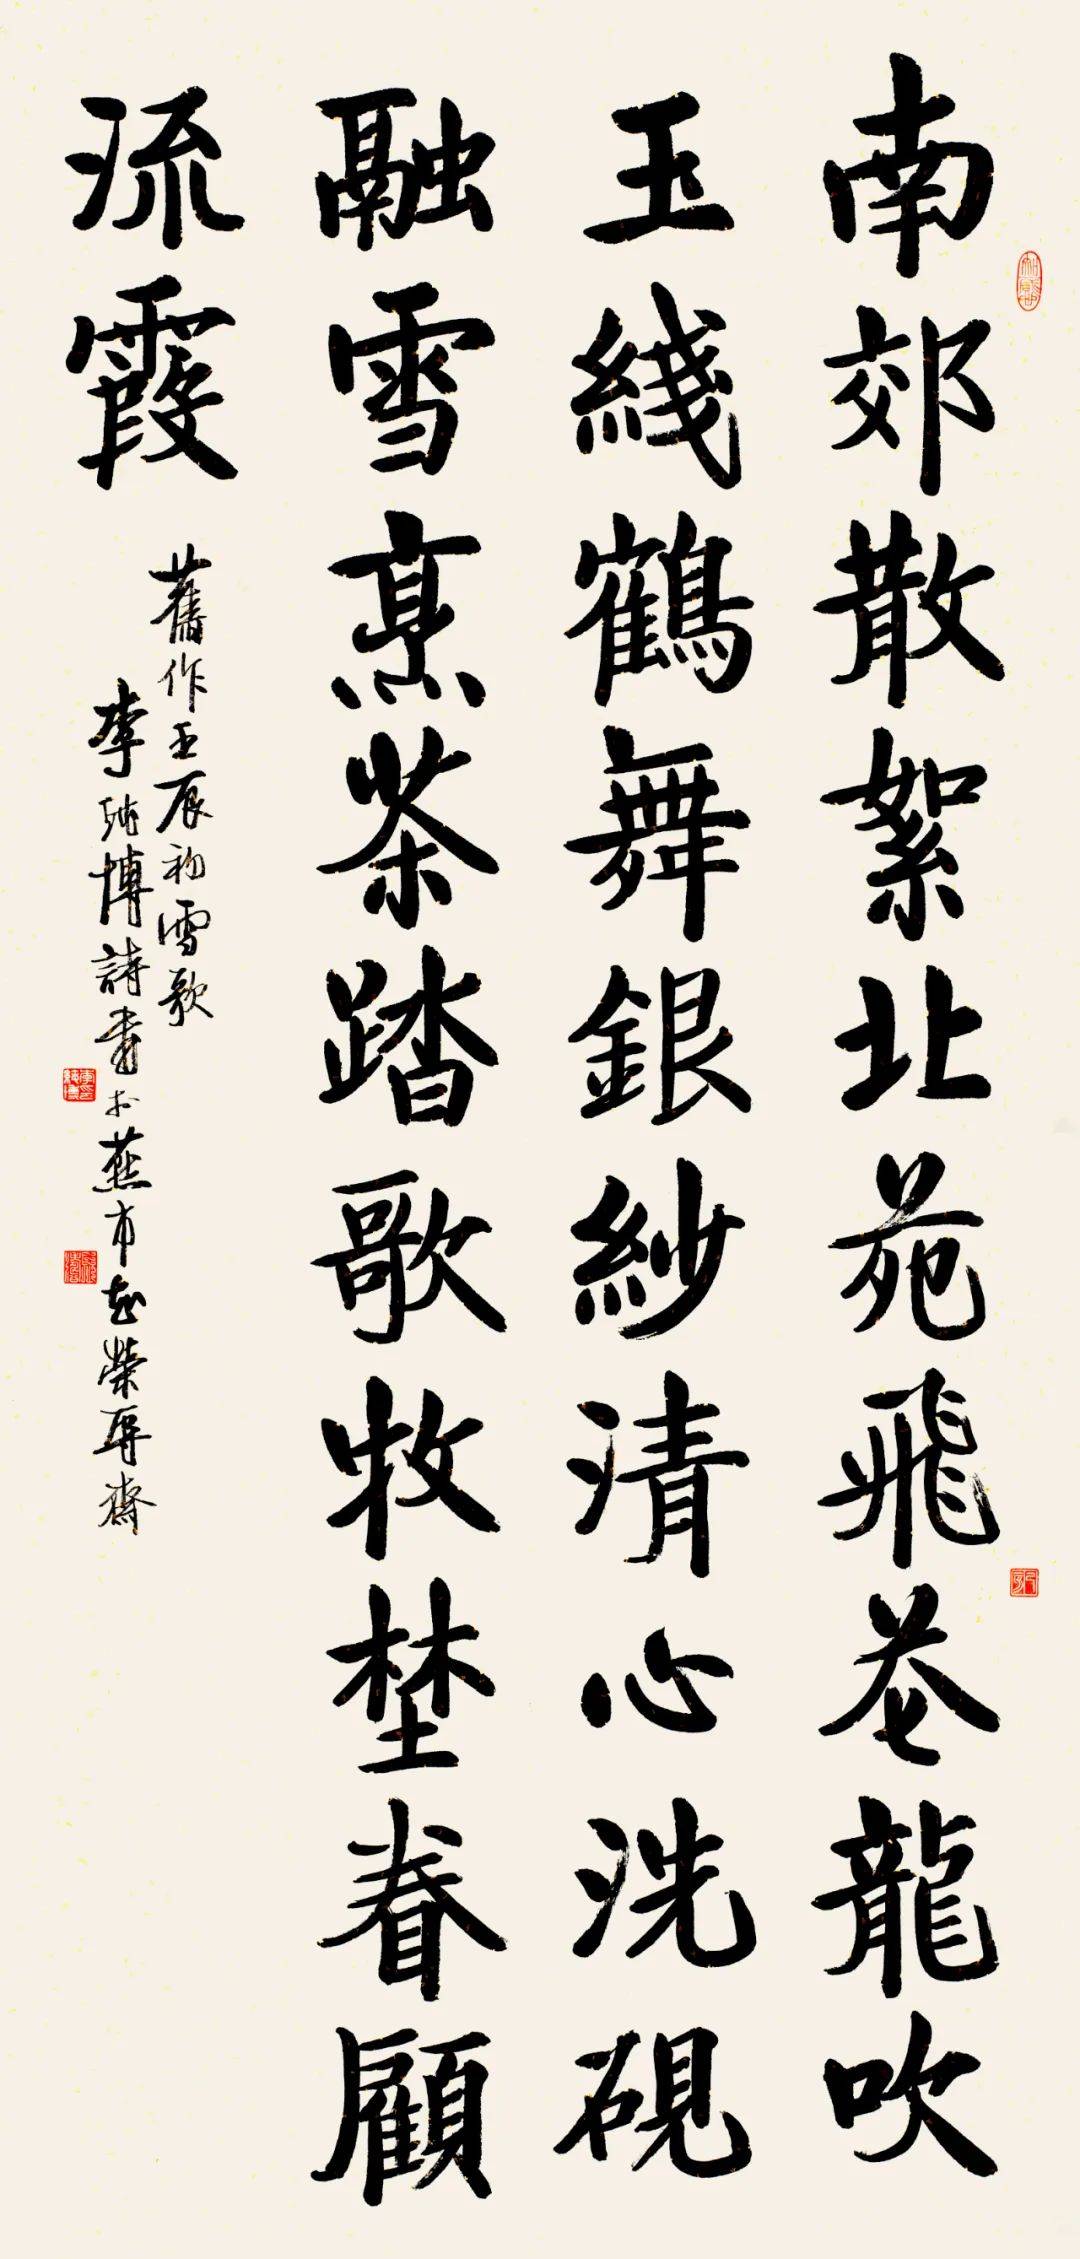 南郊散絮北苑飛花龍吹
玉綫鶴舞銀紗清心洗硯
融雪烹茶踏歌牧埜眷顧
流霞
舊作壬辰初雪歌
李純博詩書於燕市知榮辱齋